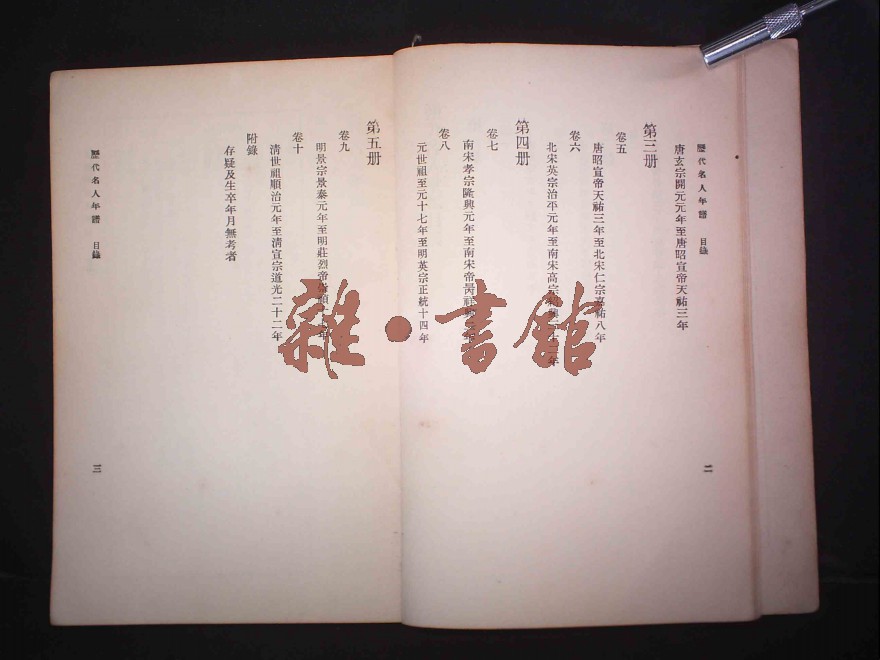 歷代名人年譜 目錄
二
唐玄宗開元元年至唐昭宣帝天祐三年
第三册
卷五
唐昭宣帝天祐三年至北宋仁宗嘉祐八年
卷六
北宋英宗治平元年至南宋高宗興二年
第四册
卷七
南宋孝宗隆興元年至南宋帝昺祥年
卷八
元世祖至元十七年至明英宗正統十四年
第五册
卷九
明景宗景泰元年至明莊烈帝年
卷十
清世祖順治元年至清宣宗道光二十二年
附錄
存疑及生卒年月無考者
歷代名人年譜 目錄
三
雜·書館